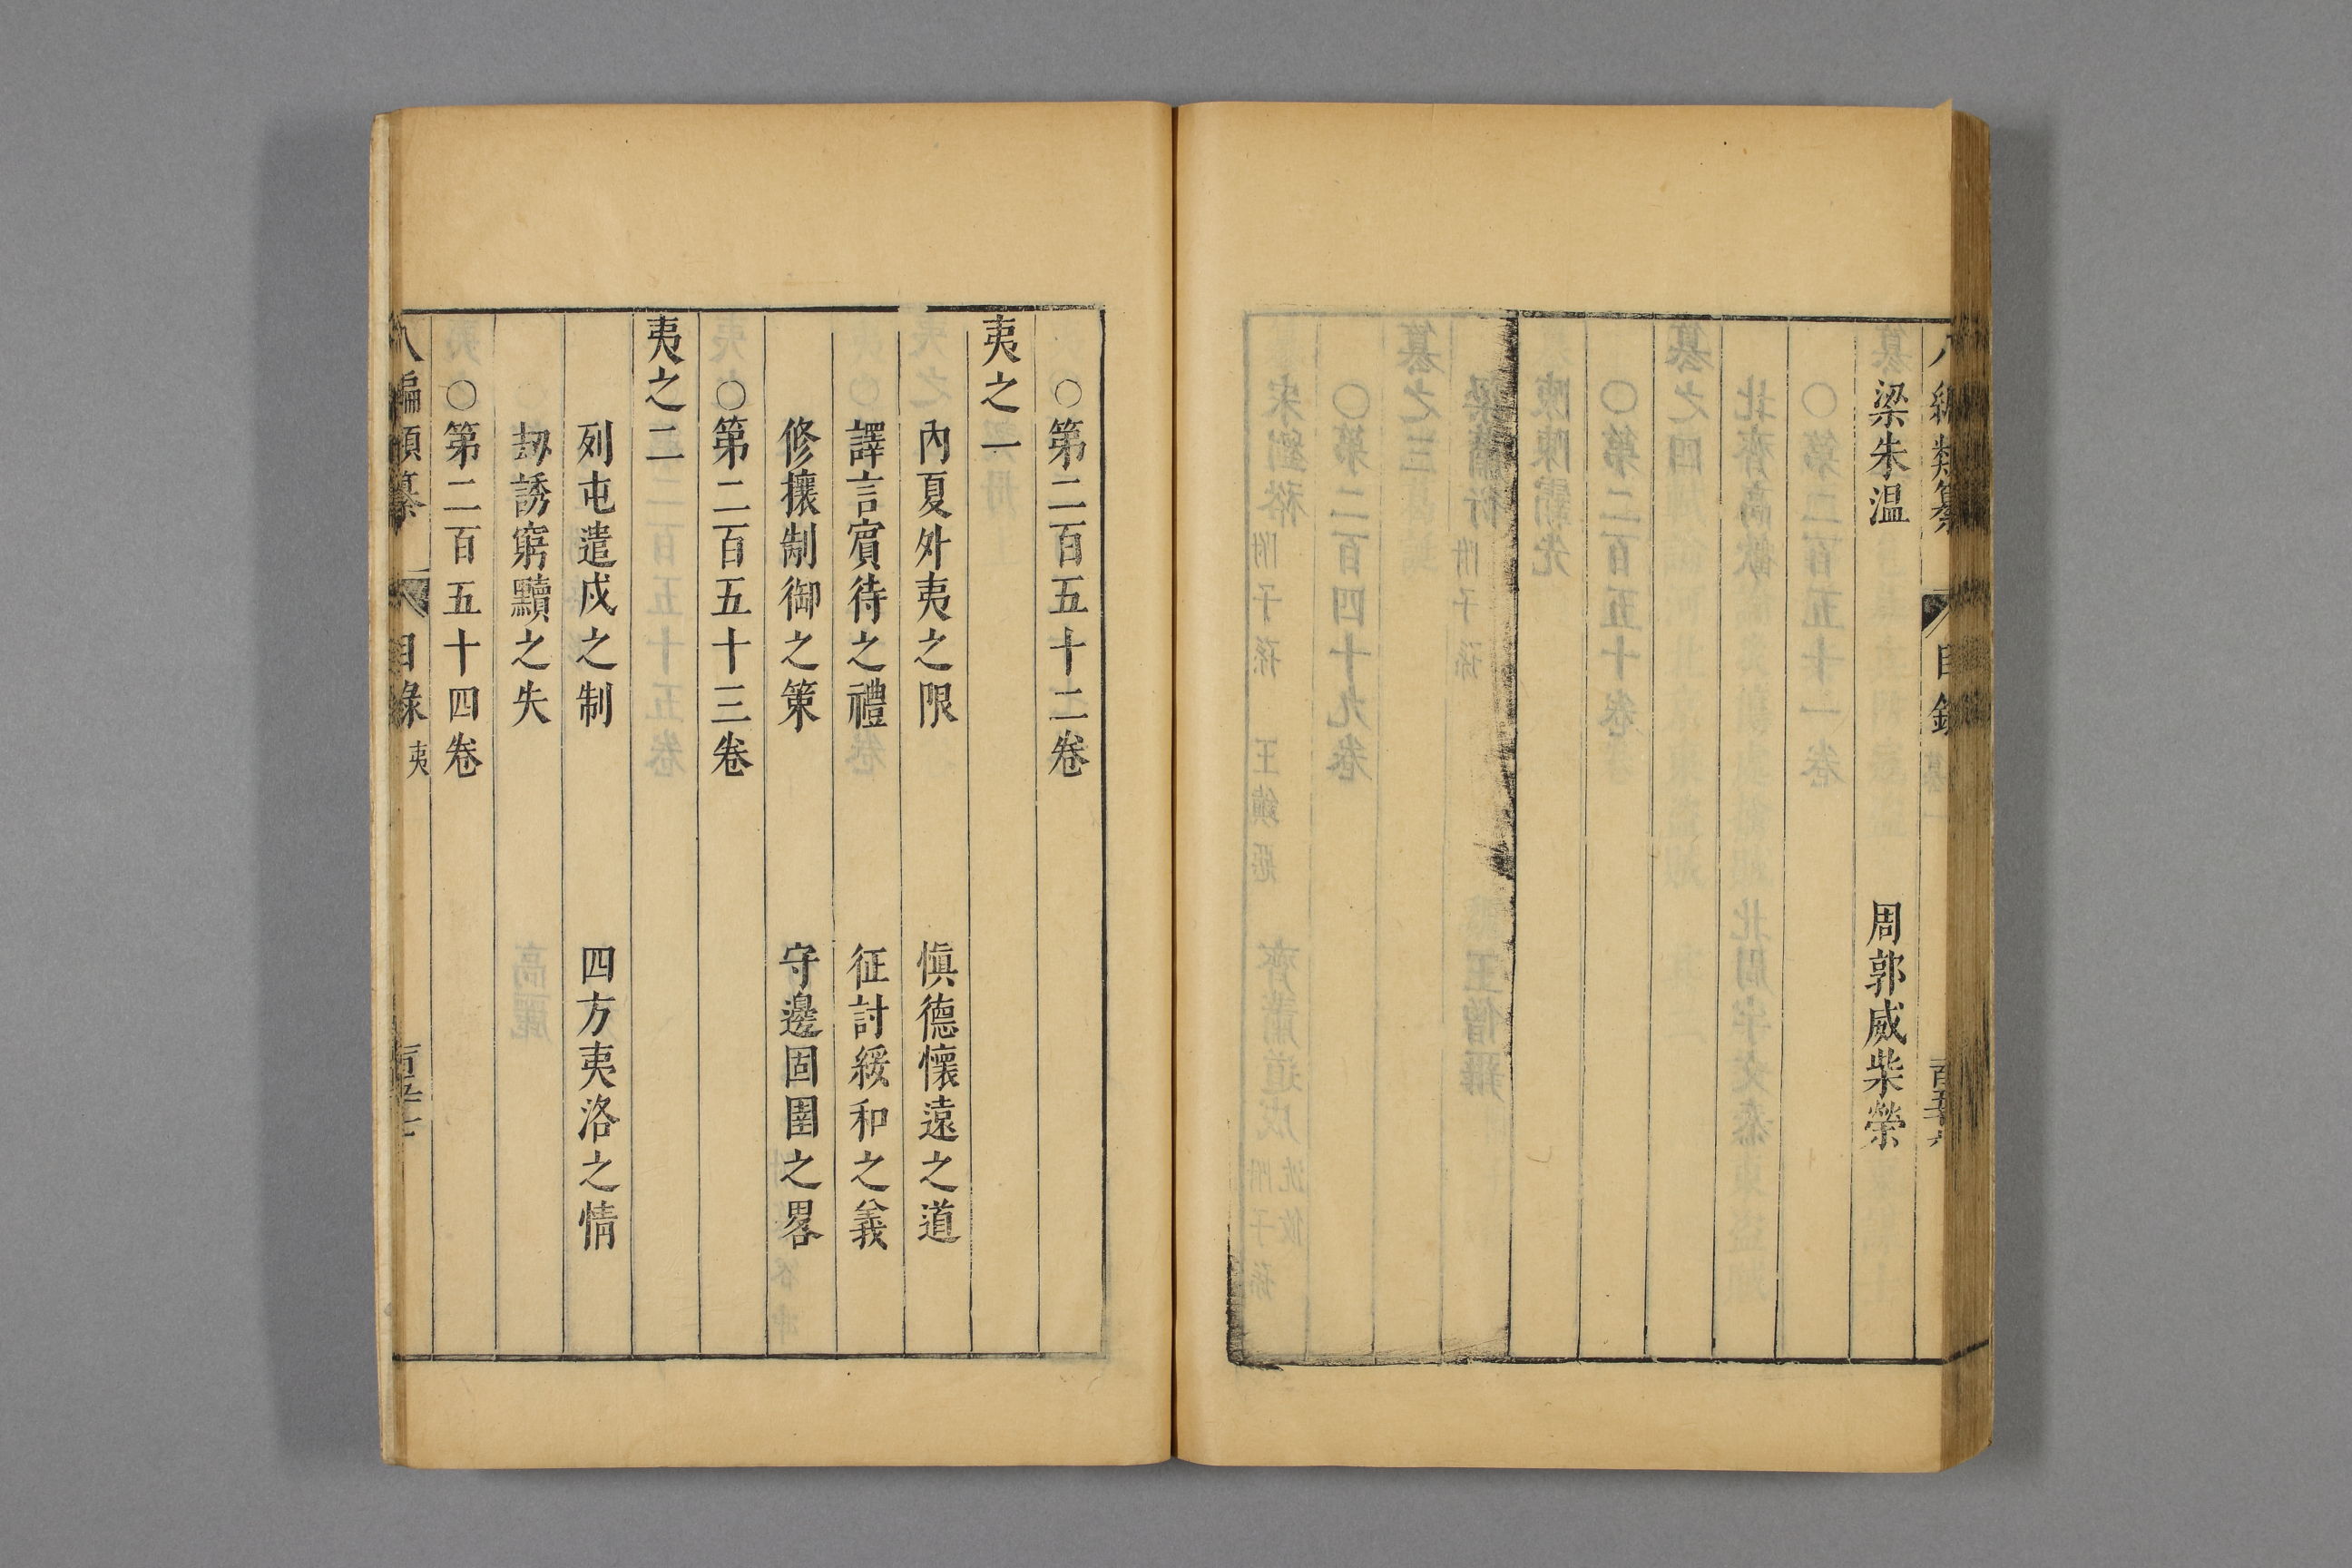 梁朱温　周郭威柴榮
○第二百五十二卷
夷之一
內夏外夷之限　愼德懷遠之道
譯言賔待之禮　征討綏和之義
修攘制御之策　守邊固圉之畧
○第二百五十三卷
夷之二
列屯遣戍之制　四方夷洛之情
刼誘窮黷之失
○第二百五十四卷
八編類纂　目錄　夷